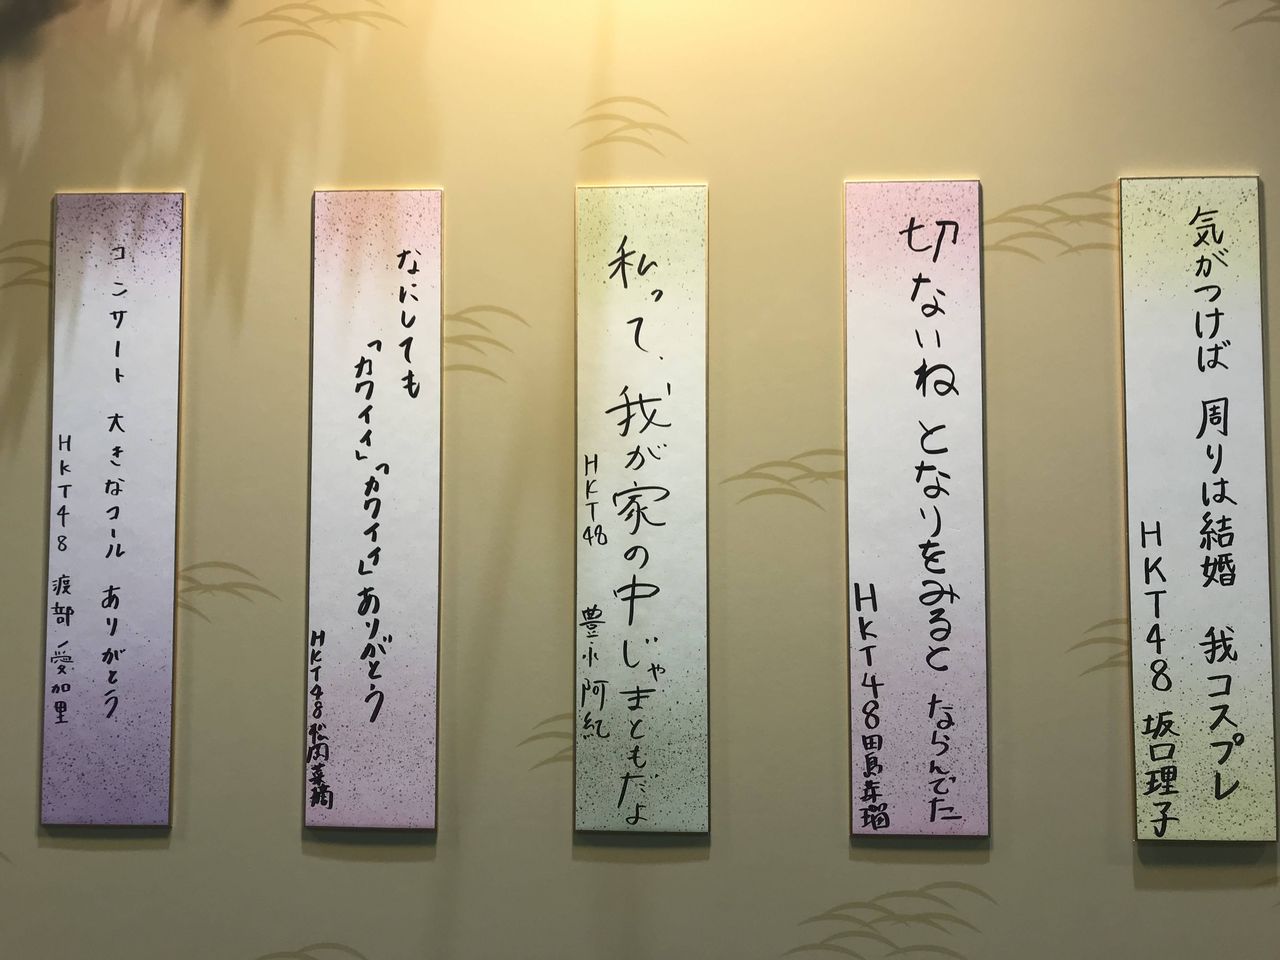 気がつけば 周りは結婚 我コスプレ
HKT48 坂口理子
切ないね となりをみると ならんでた
HKT48 田島芽瑠
私って、我が家の中じゃまともだよ
HKT48 豊永阿紀
なにしても
「カワイイ」「カワイイ」ありがとう
HKT48 松岡菜摘
コンサート 大きなコール ありがとう
HKT48 渡部愛加里